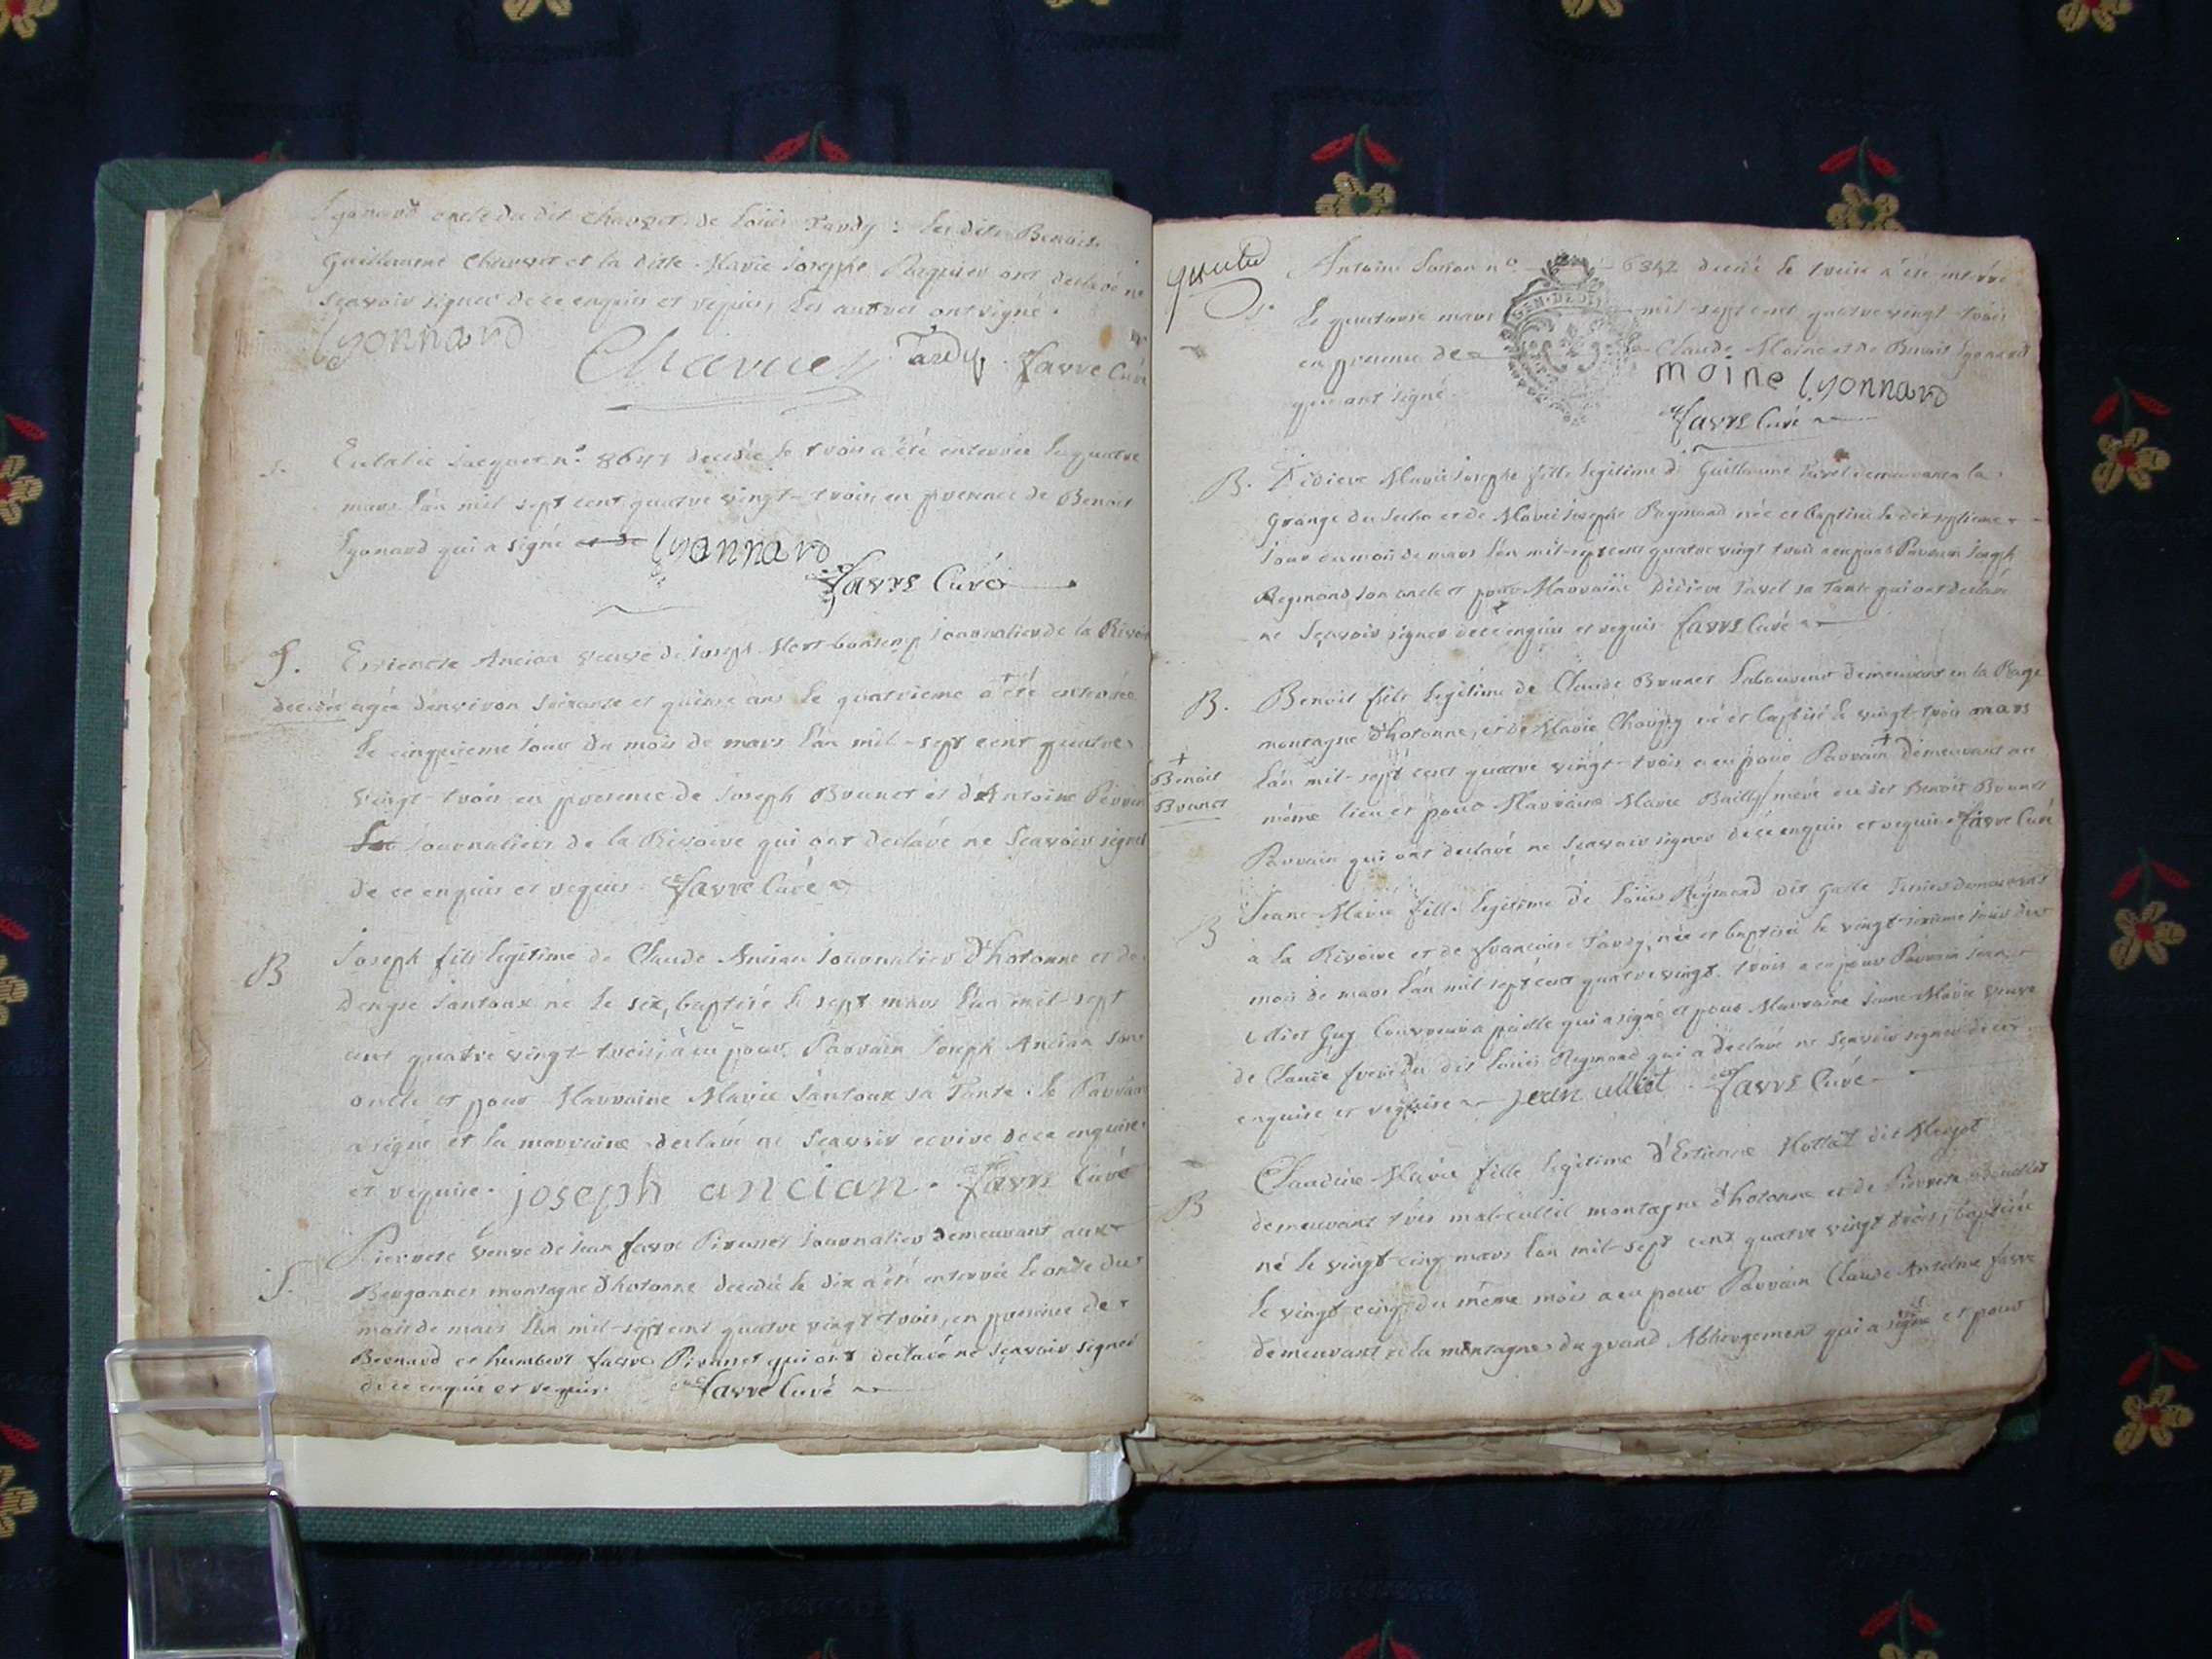 Lyonard oncle du dit Chavuet de Loüis Tardy : les dits Benoit
Guillaume Chavuet et la ditte Marie Josephe ont declaré ne
Scavoir signer de ce enquis et requis, les autres ont signé.
Lyonnard Chavuet Tardy favre Curé
S. Eulalie Jacquet n.º 8641 decédée le trois a été enterrée le quatre
mars l'an mil sept cent quatre vingt-trois en presence de Benoit
Lyonard qui a signé et de Lyonnard
favre Curé
S. Estiennete Ancian veuve de Joseph journalier de la Rivoire
decédée agée d'environ soixante et quinze ans le quatrieme a été enterrée
le cinquieme jour du mois de mars l'an mil-sept cent quatre
vingt-trois en presence de Joseph Brunet et d'Antoine
journaliers de la Rivoire qui ont declaré ne Scavoir signer
de ce enquis et requis. favre Curé
B Joseph fils legitime de Claude Ancian journalier d'hotonne et de
denyse Jantoux né le six, baptisé le sept mars l'an mil-sept
cent quatre vingt-trois, a eu pour Parrain Joseph Ancian son
oncle et pour Marraine Marie Jantoux sa Tante. le Parrain
a signé et la marraine declaré ne Scavoir ecrire de ce enquise
et requise. joseph ancian. favre Curé
S. Pierrete veuve de Jean favre Pirunet journalier demeurant aux
Bergonnes montagne d'hotonne decedée le dix a été enterrée le onze du
mois de mars l'an mil-sept cent quatre vingt trois, en presence de
Bernard et humbert favre Pirunet qui ont declaré ne Sçavoir signer
de ce enquis et requis. favre Curé
S. Antoine n.º 6342 decedé le treize a été enterré
le quatorze mars mil-sept cent quatre vingt-trois
en presence de Claude Moine et de Benoit Lyonard
qui ont signé. moine Lyonnard
favre Curé
GEN. DE DI
B. Didiere Marie Josephe fille legitime de Guillaume Javel demeurant en la
Grange du et de Marie Josephe Reymond née et baptisée le dix septieme
jour du mois de mars l'an mil-sept cent quatre vingt trois a eu pour Parrain Joseph
Reymond son oncle et pour Marraine Didiere Javel sa Tante qui ont declaré
ne Sçavoir signer de ce enquis et requis favre Curé
B. Benoit fils legitime de Claude Brunet Laboureur demeurant en la
montagne d'hotonne, et de Marie né et baptisé le vingt-trois mars
l'an mil-sept cent quatre vingt-trois a eu pour Parrain + demeurant au
+ Benoit Brunet
même lieu et pour Marraine Marie Bailly mere du dit Benoit Brunet
Parrain qui ont declaré ne Sçavoir signer de ce enquis et requis. favre Curé
B Jeane-Marie fille legitime de Loüis Reymond dit demeurant
à la Rivoire et de françoise Tardy, née et baptisée le vingt-sixieme jour du
mois de mars l'an mil sept cent quatre vingt-trois a eu pour Parrain Jean
Ulliet Guy Couvreur a paille qui a signé et pour Marraine Jeane-Marie veuve
de Claude frere du dit Loüis Reymond qui a declaré ne Sçavoir signer de ce
enquise et requise jean ulliet. favre Curé
B Claudine-Marie fille legitime d'Estienne Mottat dit
demeurant montagne d'hotonne et de Pierrete
né le vingt-cinq mars l'an mil-sept cent quatre vingt trois, baptisée
le vingt-cinq du même mois a eu pour Parrain Claude-Antelme favre
demeurant à la montagne du grand Abbergement qui a signé et pour